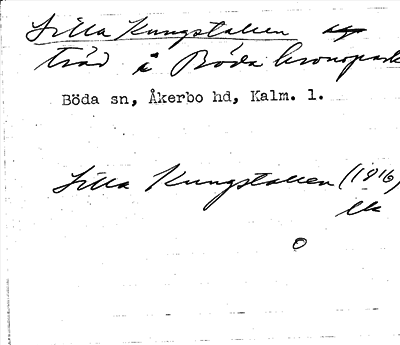 Lilla Kungstallen
träd i Böda kronopark
Böda sn, Åkerbo hd, Kalm. l.
Lilla Kungstallen (1816)
ek